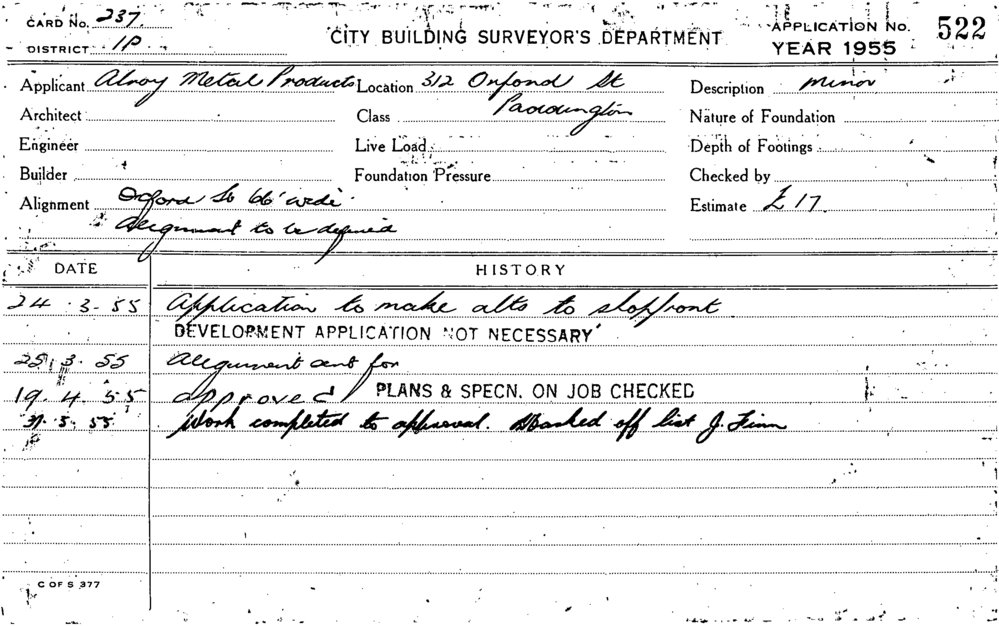 CARD No. 237.
DISTRICT 1P.
CITY BUILDING SURVEYOR'S DEPARTMENT
APPLICATION No. 522
YEAR 1955
Applicant Alroy Metal Products Location 312 Oxford St Description Minor
Architect Class Paddington Nature of Foundation
Engineer Live Load Depth of Footings
Builder Foundation Pressure Checked by
Alignment Oxford St 66' wide. Estimate £17.
Alignment to be defined
DATE HISTORY
24.3.55 Application to make alts to shopfront
DEVELOPMENT APPLICATION NOT NECESSARY
25.3.55 Alignment for
19.4.55 approved PLANS & SPECN. ON JOB CHECKED
.5.55 Work completed to approval. Marked off list J. Finn
C OF S 377